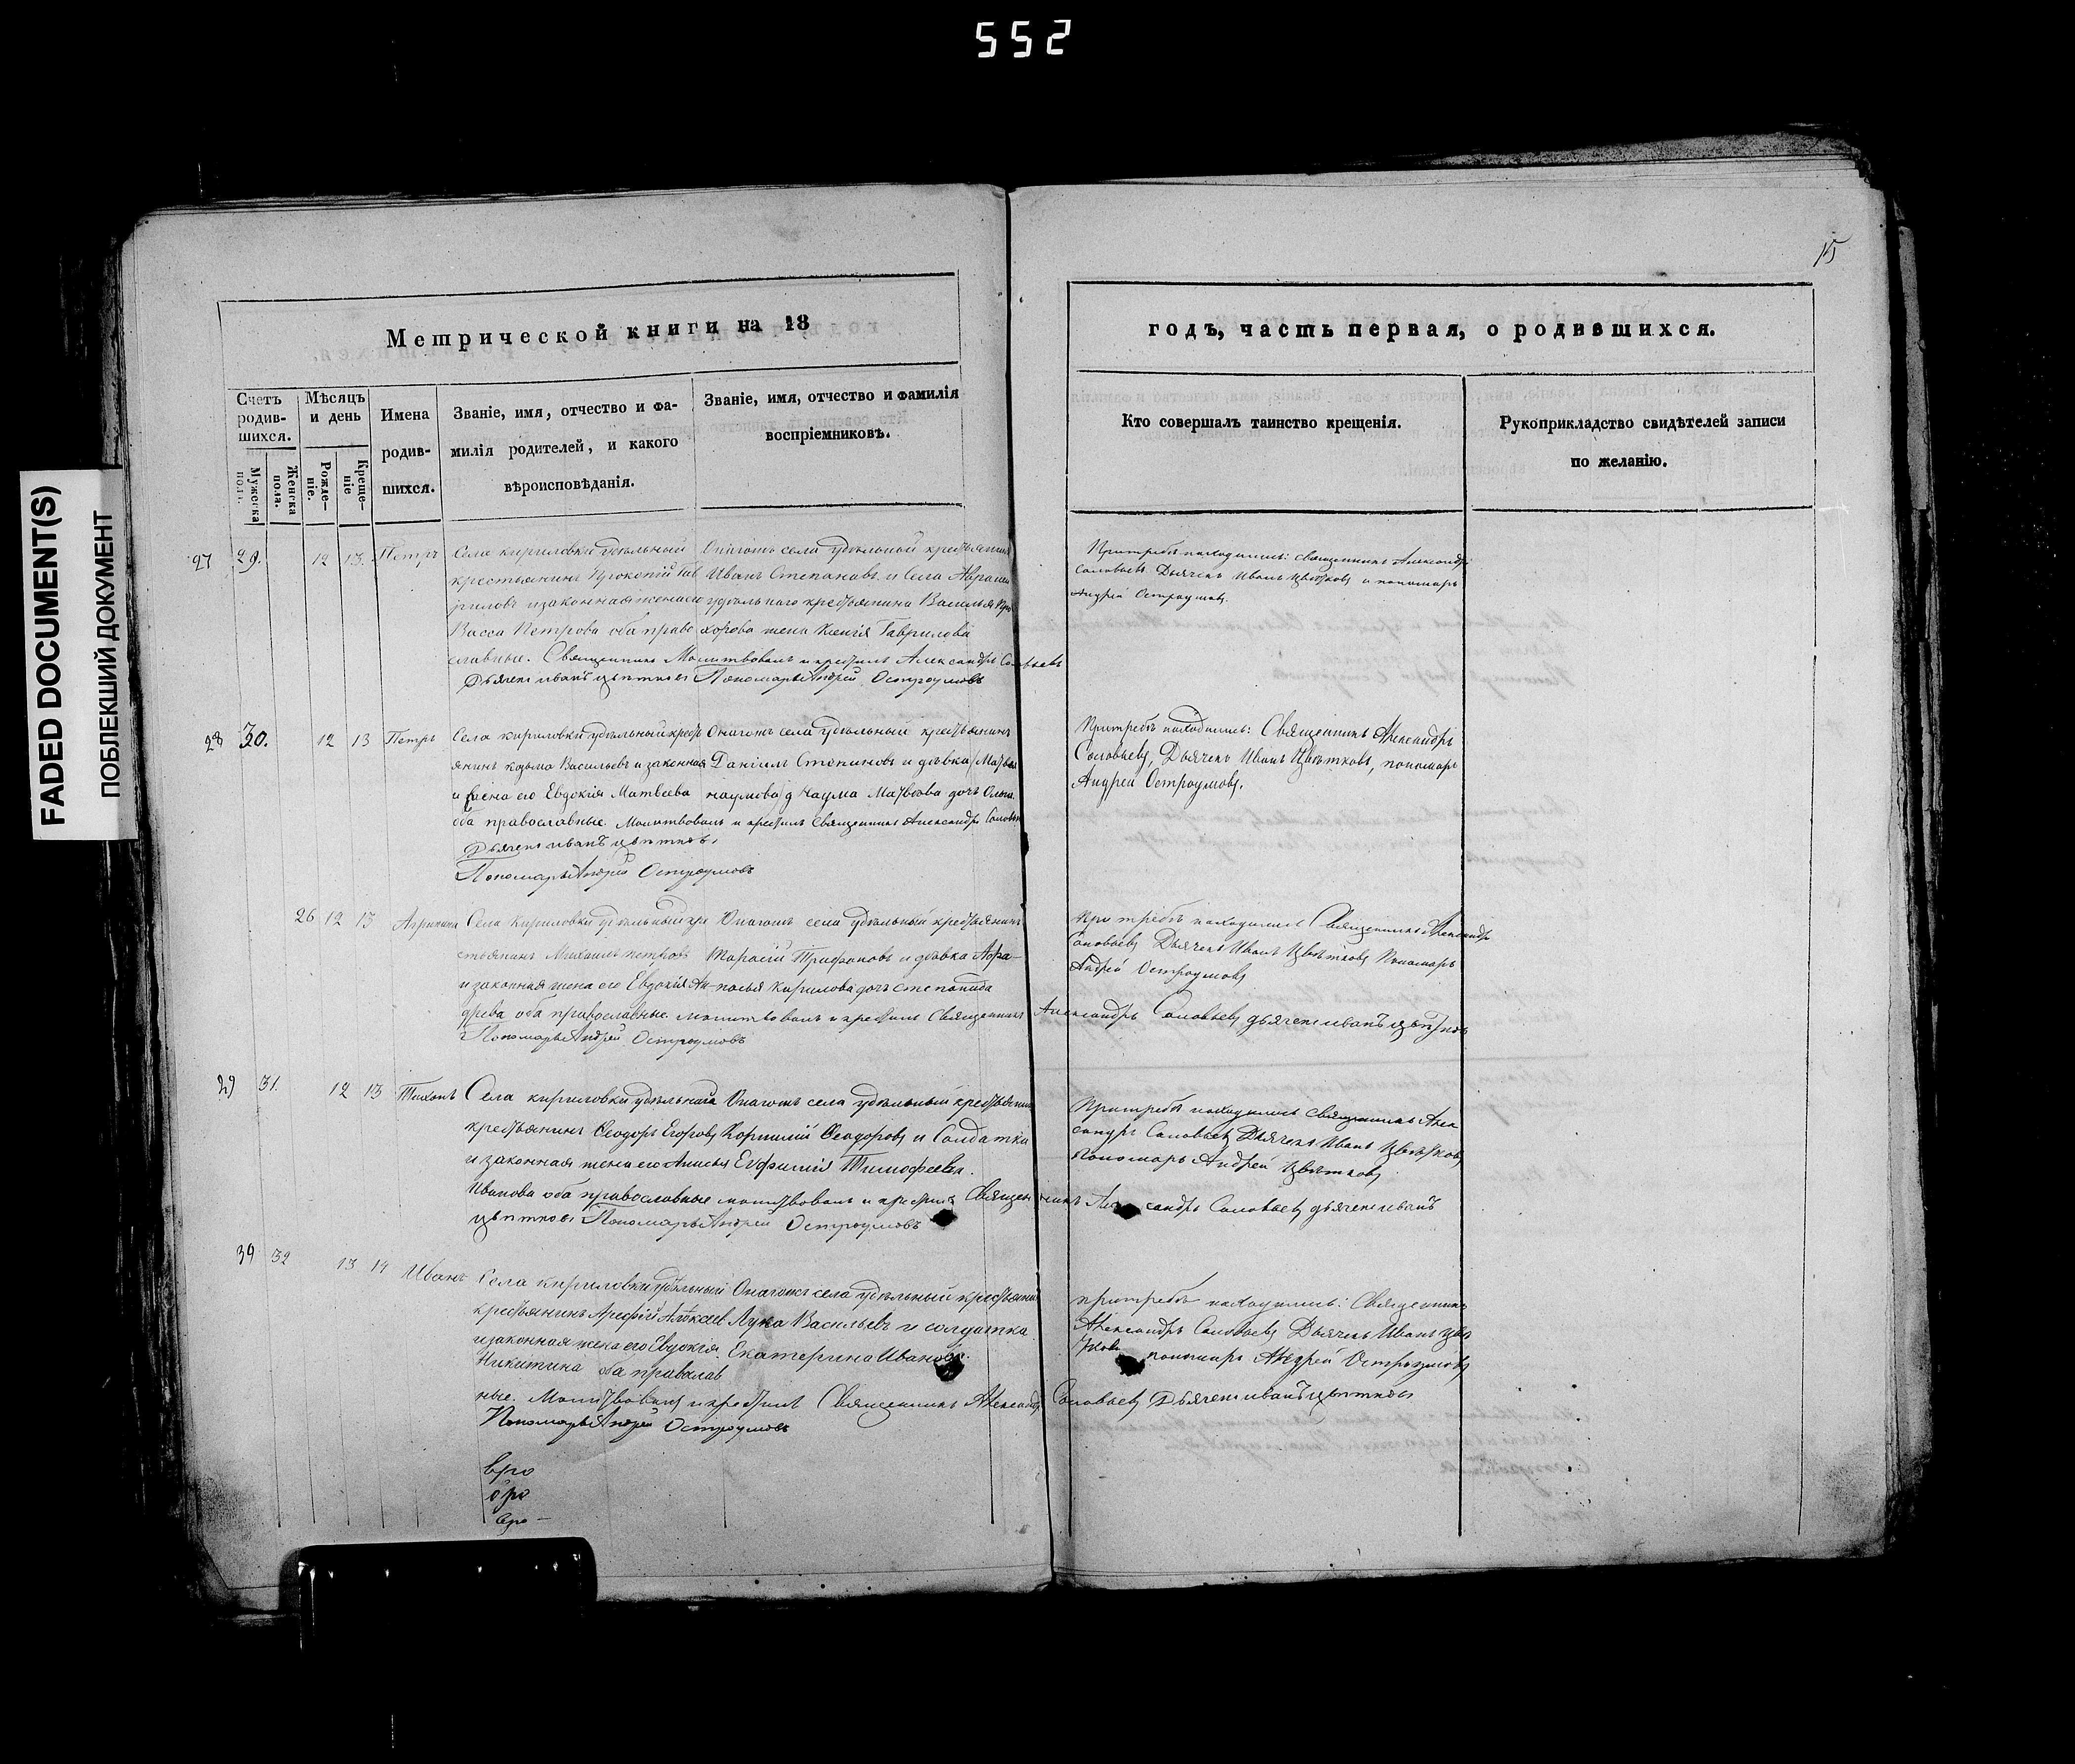 552
15
FADED DOCUMENT(S)
ПОБЛЕКШИЙ ДОКУМЕНТ
Метрической книги на 18
Счетъ родив-шихся.
Мужеска пола.
Женска пола.
Мѣсяцъ и день
Рожде-ніе.
Креще-ніе
Имена родив-шихся.
Званіе, имя, отчество и фа-
милія родителей, и какого
вѣроисповѣданія.
Званіе, имя, отчество и фамилія
воспріемниковъ.
27 29. 12 13. Петръ
Села кириловки удѣльный
крестьянинъ Прокопій Гав
риловъ и законная жена его
Васса Петрова оба право
славные. Священникъ Молитвовалъ и крестилъ Александръ Соловьевъ
Дьячекъ иванъ цвѣтковъ Пономарь Андрей Остроумовъ
Онагожъ села удѣльной крестьянинъ
Иванъ Степановъ и села
удѣльнаго крестьянина Василья Про
хорова жена Ксенія Гаврилова
28 30. 12 13 Петръ
Села кириловки удѣльный крест
янинъ козьма Васильевъ и законная
жена его Евдокія Матвеева
оба православные. Молитвовалъ и крестилъ Священникъ Александръ Соловьев
Дьячекъ иванъ цвѣтковъ
Пономарь Андрей Остроумовъ
Онагожъ села удѣльный крестьянинъ
Даніилъ Степановъ и дѣвка
наумова наума дочь
26 12 13 Агрипина
Села Кириловки удѣльный кре
стьянинъ Михаилъ петровъ
и законная жена его Евдокія Ан
древа оба православные. молитвовалъ и крестилъ Священникъ Александръ Соловьевъ дьячекъ иванъ цвѣтковъ
Пономарь Андрей Остроумовъ
Онагожъ села удѣльный крестьянинъ
Тарасій Трифоновъ и дѣвка Афа-
насья Кирилова дочь степанида
29 31. 12 13 Тихонъ
Села кириловки удѣльнага
крестьянинъ Феодоръ Егоровъ
и законная жена его Анисья
Иванова оба православные молитвовалъ и крестилъ Священникъ Александръ Соловьевъ дьячекъ иванъ
цвѣтковъ Пономарь Андрей Остроумовъ
Онагожъ села удѣльный крестьянинъ
Корнилій Феодоровъ и Солдатка
Евфимія Тимофеева.
39 32 13 14 Иванъ
Села кириловки удѣльный
крестьянинъ Арефій Алексеев
и законная жена его Евдокія
Никитина оба православ
ные. Молитвовалъ и крестилъ Священникъ Александръ Соловьевъ Дьячекъ иванъ цвѣтковъ
Пономарь Андрей Остроумовъ
Онагожъ села удѣльный крестьянинъ
Лука Васильевъ и солдатка
Екатерина Иванова.
годъ, часть первая, о родившихся.
Кто совершалъ таинство крещенія.
Рукоприкладство свидѣтелей записи
по желанію.
Притребѣ находились: священникъ Александръ
Соловьевъ Дьячекъ Иванъ Цвѣтковъ и пономарь
Андрей Остроумовъ.
Притребѣ находились: Священникъ Александръ
Соловьевъ, Дьячекъ Иванъ Цвѣтковъ, пономарь
Андрей Остроумовъ.
При требѣ находились Священникъ Александръ
Соловьевъ Дьячекъ Иванъ Цвѣтковъ Пономарь
Андрей Остроумовъ
Притребѣ находились священникъ Алек
сандръ Соловьевъ Дьячекъ Иванъ Цвѣтковъ
Пономарь Андрей Цвѣтковъ
притребѣ находились: Священникъ
Александръ Соловьевъ Дьячекъ Иванъ Цвѣ
тковъ пономарь Андрей Остроумовъ